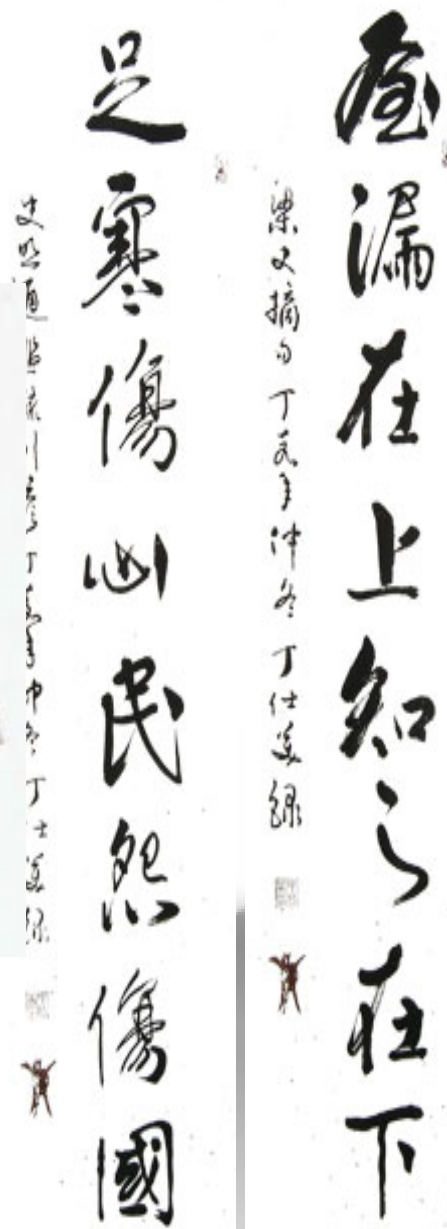 屋漏在上知之在下
梁文摘句丁亥年仲冬丁仕美録
足寒傷心民怨傷國
史照通鑑疏引諺丁亥年仲冬丁仕美録